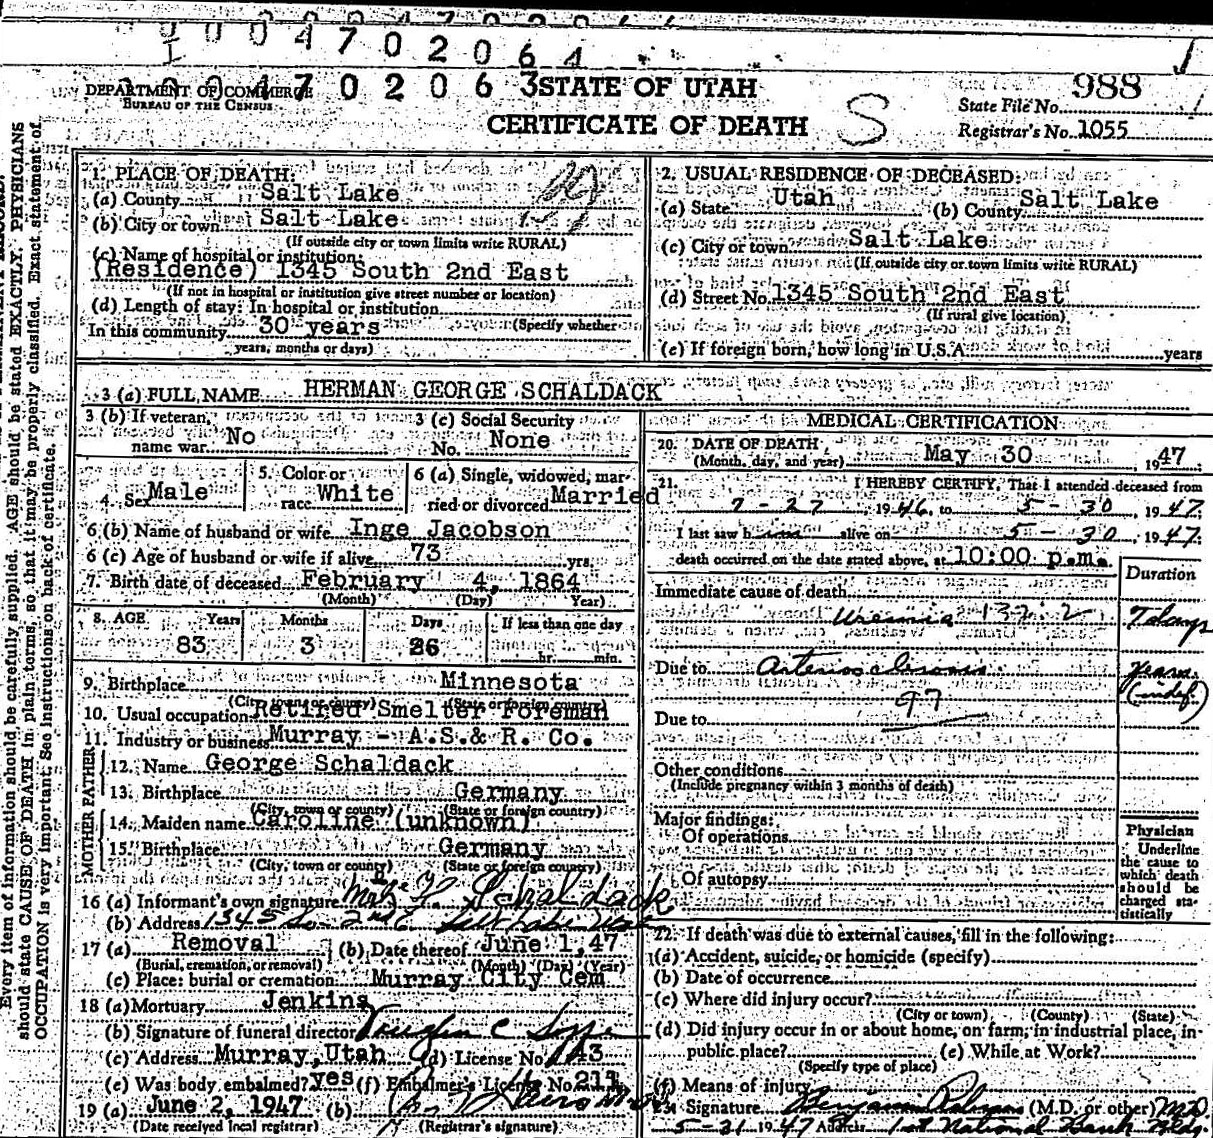 0004702064
DEPARTMENT OF COMMERCE
BUREAU OF THE CENSUS
0004702063
STATE OF UTAH
CERTIFICATE OF DEATH
S
988
State File No.
Registrar's No. 1055
Every item of information should be carefully supplied. AGE should be stated EXACTLY. PHYSICIANS
should state CAUSE OF DEATH in plain terms, so that it may be properly classified. Exact statement of
OCCUPATION is very important. See instructions on back of certificate.
1. PLACE OF DEATH:
(a) County Salt Lake
(b) City or town Salt Lake
(If outside city or town limits write RURAL)
(c) Name of hospital or institution:
(Residence) 1345 South 2nd East
(If not in hospital or institution give street number or location)
(d) Length of stay: In hospital or institution
In this community 30 years (Specify whether
years, months or days)
2. USUAL RESIDENCE OF DECEASED:
(a) State Utah (b) County Salt Lake
(c) City or town Salt Lake
(If outside city or town limits write RURAL)
(d) Street No. 1345 South 2nd East
(If rural give location)
(e) If foreign born, how long in U.S.A. years
3 (a) FULL NAME HERMAN GEORGE SCHALDACK
3 (b) If veteran, name war No
3 (c) Social Security No. None
4. Sex Male
5. Color or race White
6 (a) Single, widowed, married or divorced Married
6 (b) Name of husband or wife Inge Jacobson
6 (c) Age of husband or wife if alive 73 yrs.
7. Birth date of deceased February 4, 1864
(Month) (Day) Year)
8. AGE Years Months Days If less than one day
83 3 26 hr. min.
9. Birthplace Minnesota
(City, town or county) (State or foreign country)
10. Usual occupation Retired Smelter Foreman
11. Industry or business Murray - A.S.& R. Co.
FATHER
12. Name George Schaldack
13. Birthplace Germany
(City, town or county) (State or foreign country)
MOTHER
14. Maiden name Caroline (unknown)
15. Birthplace Germany
(City, town or county) (State or foreign country)
16 (a) Informant's own signature Mrs. H. Schaldack
(b) Address 1345 So. 2nd E. Salt Lake Utah
17 (a) Removal (b) Date thereof June 1, 47
(Burial, cremation, or removal) (Month) (Day) (Year)
(c) Place: burial or cremation Murray City Cem
18 (a) Mortuary Jenkins
(b) Signature of funeral director Vaughn C
(c) Address Murray, Utah (d) License No. 143
(e) Was body embalmed? yes (f) Embalmer's License No. 211
19 (a) June 2, 1947 (b)
(Date received local registrar) (Registrar's signature)
MEDICAL CERTIFICATION
20. DATE OF DEATH
(Month, day, and year) May 30, 1947
21. I HEREBY CERTIFY, That I attended deceased from
7-27, 1946, to 5-30, 1947.
I last saw him alive on 5-30, 1947.
death occurred on the date stated above, at 10:00 p.m.
Duration
Immediate cause of death
Uremia 132.2 7 days
Due to Arteriosclerosis years (indef)
97
Due to
Other conditions
(Include pregnancy within 3 months of death)
Major findings:
Of operations
Of autopsy
Physician
Underline
the cause to
which death
should be
charged sta-
tistically
22. If death was due to external causes, fill in the following:
(a) Accident, suicide, or homicide (specify)
(b) Date of occurrence
(c) Where did injury occur?
(City or town) (County) (State)
(d) Did injury occur in or about home, on farm, in industrial place, in
public place? (e) While at Work?
(Specify type of place)
(f) Means of injury
23. Signature Benjamin (M.D. or other) M.D.
5-31 1947 Address 1st National Bank Bldg.